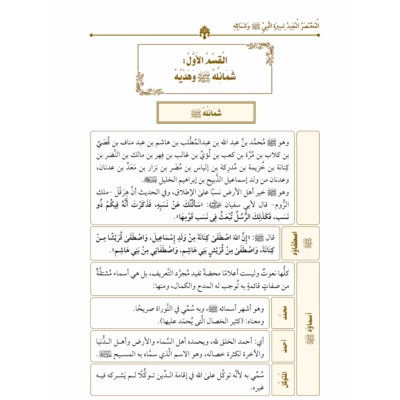 المُخْتَصَرُ المُفِيدُ لِسِيرَةِ النَّبِيِّ ﷺ وَشَمَائِلِهِ
القِسْمُ الأَوَّلُ:
شَمَائِلُهُ ﷺ وَهَدْيُهُ
شَمَائِلُهُ ﷺ
وهو ﷺ مُحمَّد بنُ عبد الله بن عبدالمُطَّلب بن هاشم بن عبد مناف بن قُصَيِّ
بن كلاب بن مُرَّة بن كعب بن لُؤَيِّ بن غالب بن فهر بن مالك بن النَّضر بن
كنانة بن خُزيمة بن مُدركة بن إلياس بن مُضَر بن نزار بن مَعَدِّ بن عدنان،
وعدنان من ولد إسماعيل الذَّبيح بن إبراهيم الخليل
وهو ﷺ خير أهل الأرض نسبًا على الإطلاق، وفي الحديث أنَّ هِرَقْلَ -ملك
الرُّوم- قال لأبي سفيان: «سَأَلْتُكَ عَنْ نَسَبِهِ، فَذَكَرْتَ أَنَّهُ فِيكُمْ ذُو
نَسَبٍ، فَكَذَلِكَ الرُّسُلُ تُبْعَثُ فِي نَسَبِ قَوْمِهَا».
اصطفاؤه ﷺ
قال ﷺ: «إِنَّ اللهَ اصْطَفَى كِنَانَةَ مِنْ وَلَدِ إِسْمَاعِيلَ، وَاصْطَفَى قُرَيْشًا مِنْ
كِنَانَةَ، وَاصْطَفَى مِنْ قُرَيْشٍ بَنِي هَاشِمٍ، وَاصْطَفَانِي مِنْ بَنِي هَاشِمٍ».
أسماؤه ﷺ
كلُّها نعوتٌ وليست أعلامًا محضةً تفيد مُجرَّد التَّعريف، بل هي أسماء مُشتقَّةٌ
من صفاتٍ قائمةٍ به تُوجب له المدح والكمال، ومنها:
محمد
وهو أشهر أسمائه ﷺ، وبه سُمِّي في التَّوراة صريحًا.
ومعناه: (كثير الخصال الَّتي يُحمَد عليها).
أحمد
أي: أحمد الخلق لله، ويحمده أهل السَّماء والأرض وأهل الدُّنيا
والآخرة لكثرة خصاله، وهو الاسم الَّذي سمَّاه به المسيح
المتوكل
سُمِّي به لأنَّه توكَّل على الله في إقامة الدِّين توكُّلًا لم يَشركه فيه
غيره.